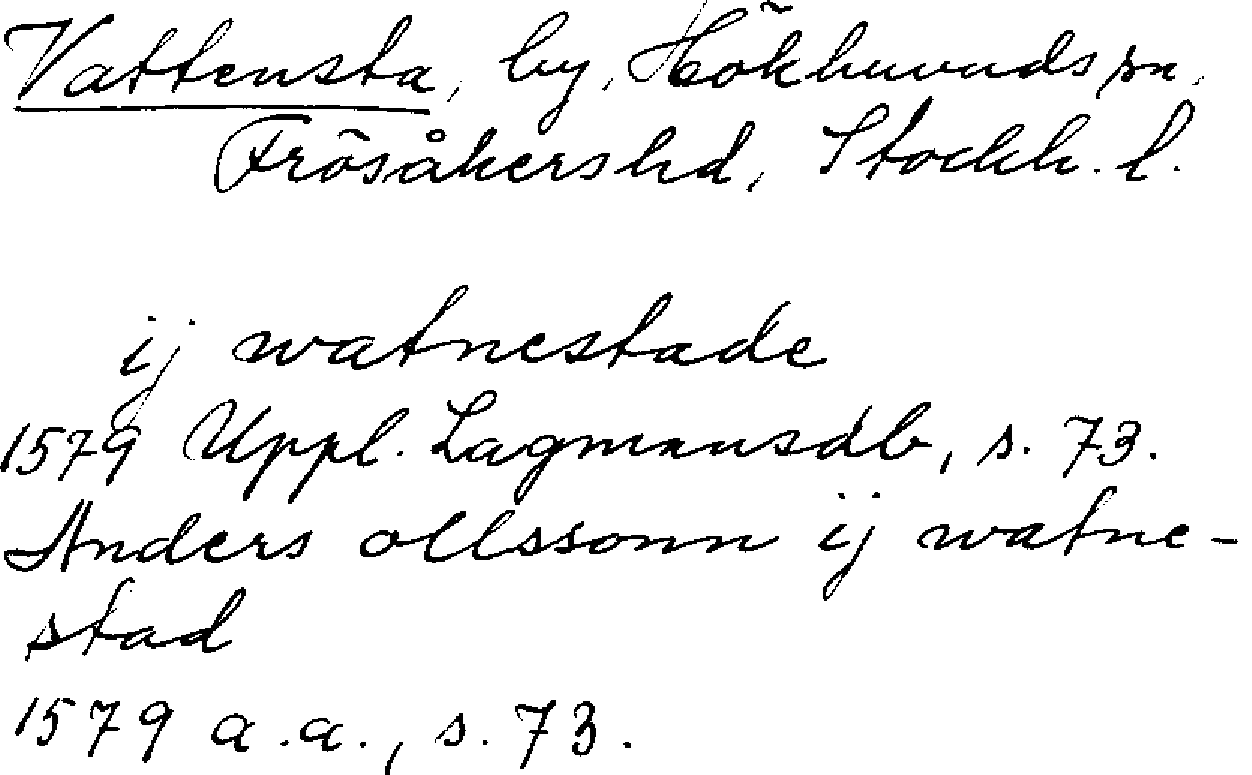 Vattensta, by, Hökhuvuds sn,
Frösåkers hd, Stockh. l.
ij watnestade
1579 Uppl. Lagmansdb, s. 73.
Anders ollssonn ij watne-
stad
1579 a.a., s. 73.